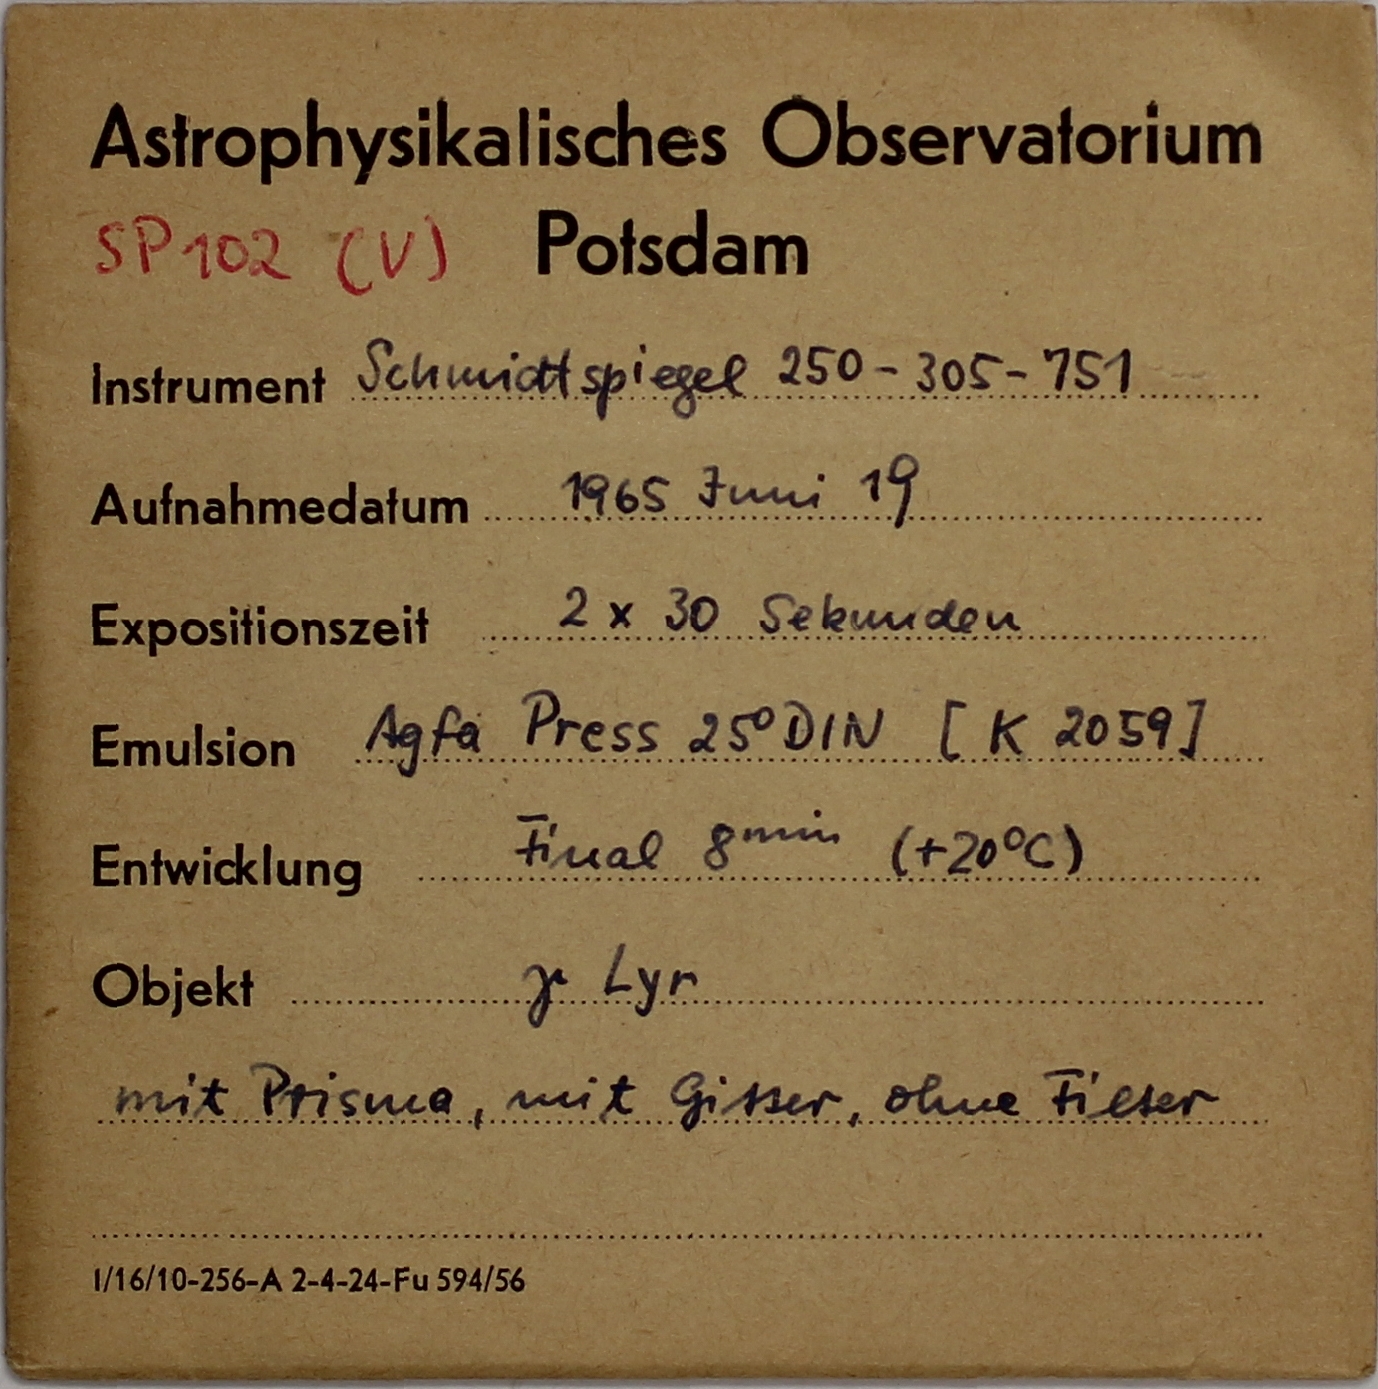 Astrophysikalisches Observatorium
SP 102 (V) Potsdam
Instrument Schmidtspiegel 250-305-751
Aufnahmedatum 1965 Juni 19
Expositionszeit 2 x 30 Sekunden
Emulsion Agfa Press 25° DIN [K 2059]
Entwicklung Final 8 min (+20°C)
Objekt γ Lyr
mit Prisma, mit Gitter, ohne Filter
I/16/10-256-A 2-4-24-Fu 594/56